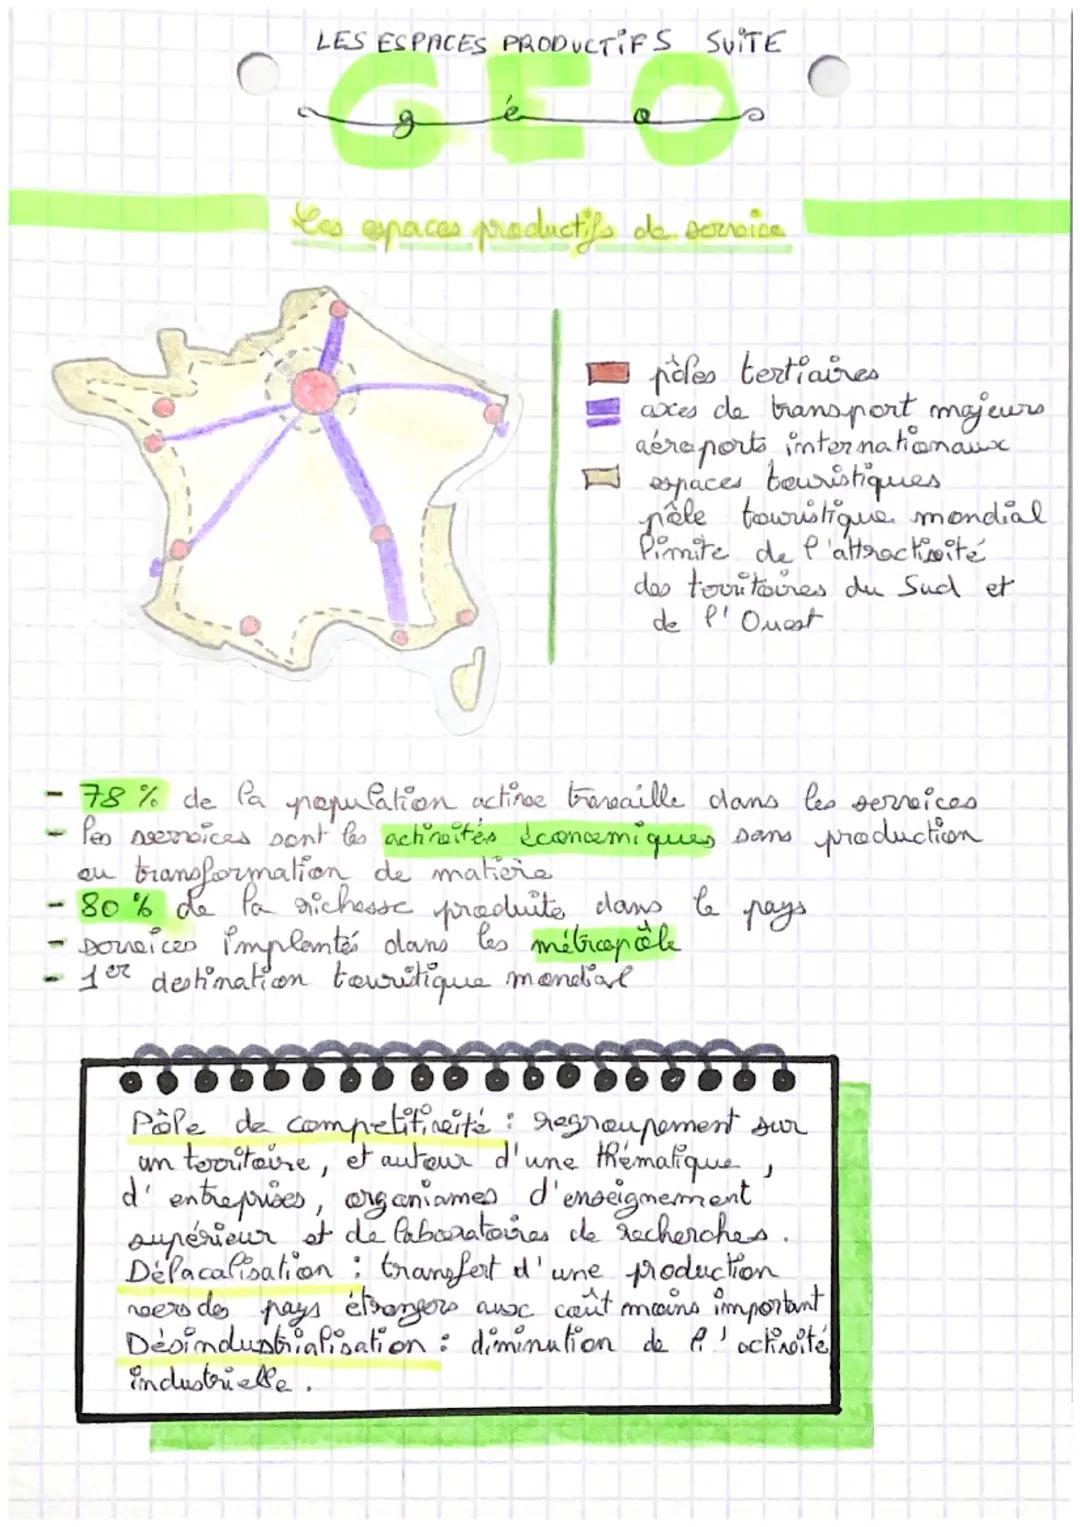 LES ESPACES PRODUCTIFS SUITE
GEO
géo
Les espaces productifs de service
pôles tertiaires
axes de transport majeurs
aéroports internationaux
espaces touristiques
pôle touristique mondial
limite de l'attractivité
des territoires du Sud et
de l'Ouest
- 78 % de la population active travaille dans les services
- les services sont les activités économiques sans production
ou transformation de matière
- 80 % de la richesse produite dans le pays
- services implantés dans les métropôle
- 1er destination touristique mondial
Pôle de compétitivité : regroupement sur
un territoire, et autour d'une thématique,
d'entreprises, organismes d'enseignement
supérieur et de laboratoires de recherches.
Délocalisation : transfert d'une production
vers des pays étrangers aux coût moins important
Désindustrialisation : diminution de l'activité
industrielle.